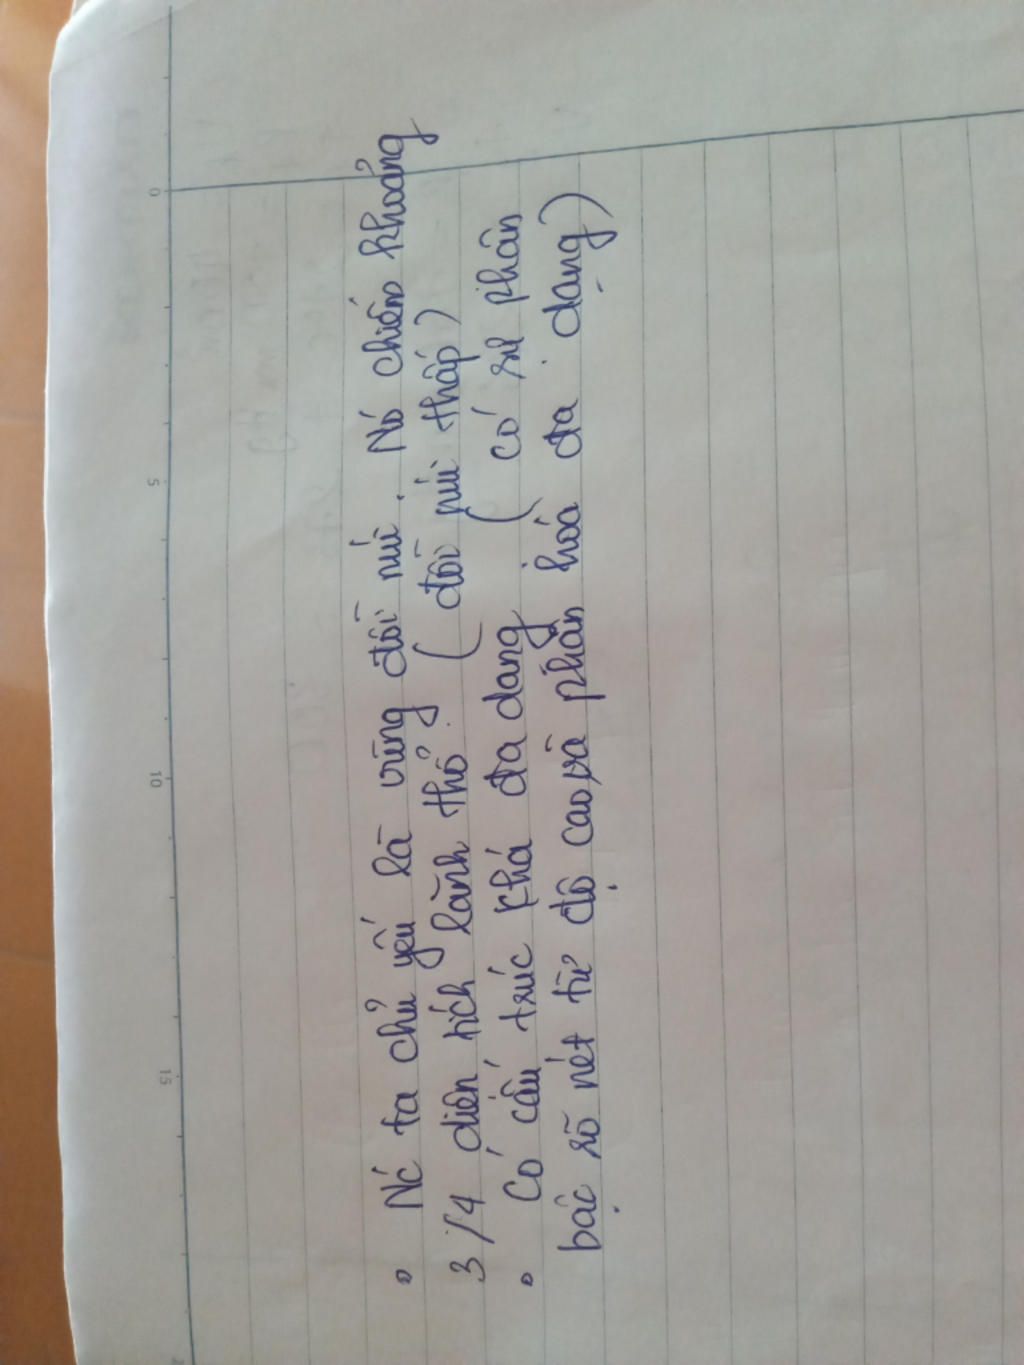 • Nć ta chủ yếu là vùng đồi núi. Nó chiếm khoảng
3/4 diện tích lãnh thổ. (đồi núi thấp)
• Có cấu trúc khá đa dang (có sự phân
bậc rõ nét từ độ cao, và phân hóa đa dạng)
0
5
10
15